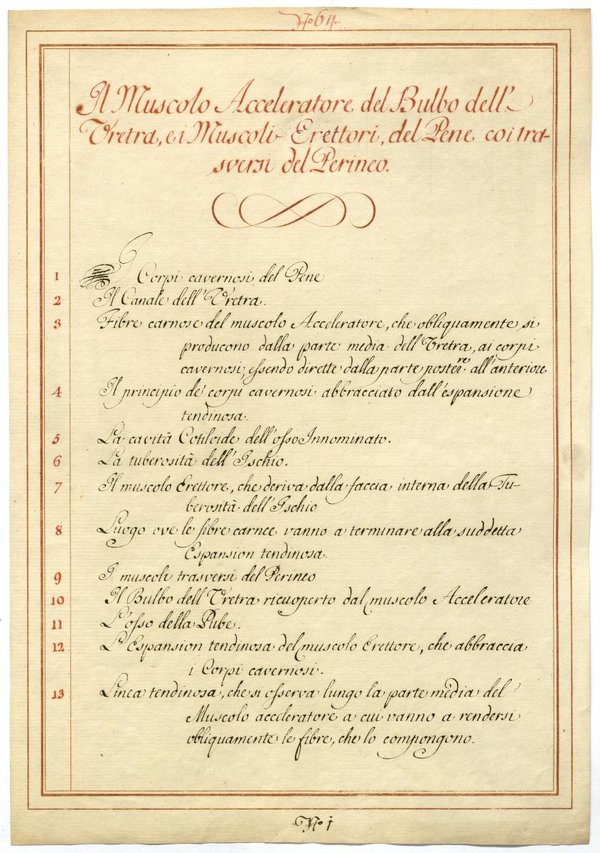 No. 64
Il Muscolo Acceleratore del Bulbo dell'
Uretra, e i Muscoli Erettori, del Pene coi tra-
sversi del Perineo.
1 I Corpi cavernosi del Pene
2 Il Canale dell'Uretra.
3 Fibre carnose del muscolo Acceleratore, che obliquamente si
producono dalla parte media dell'Uretra, ai corpi
cavernosi; essendo dirette dalla parte posterre all'anteriore
4 Il principio de' corpi cavernosi abbracciato dall'espansione
tendinosa.
5 La cavità Cotiloide dell'osso Innominato.
6 La tuberosità dell'Ischio.
7 Il muscolo Erettore, che deriva dalla faccia interna della Tu-
berosità dell'Ischio
8 Luogo ove le fibre carnee vanno a terminare alla suddetta
Espansion tendinosa.
9 I muscoli trasversi del Perineo
10 Il Bulbo dell'Uretra ricuoperto dal muscolo Acceleratore
11 L'osso della Pube.
12 L'Espansion tendinosa del muscolo Erettore, che abbraccia
i Corpi cavernosi.
13 Linea tendinosa, che si osserva lungo la parte media del
Muscolo acceleratore a cui vanno a rendersi
obliquamente le fibre, che lo compongono.
No. 1